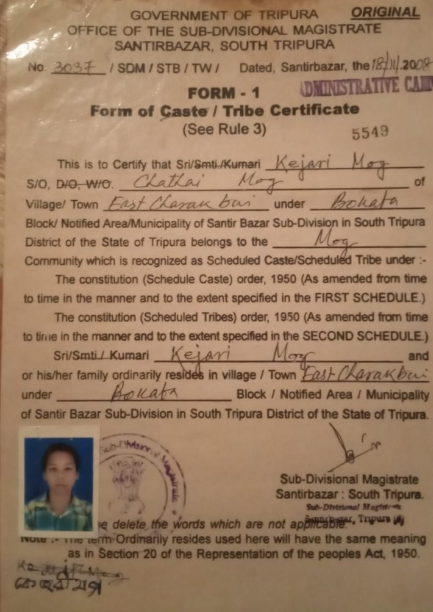 GOVERNMENT OF TRIPURA ORIGINAL
OFFICE OF THE SUB-DIVISIONAL MAGISTRATE
SANTIRBAZAR, SOUTH TRIPURA
No. 3037 / SDM / STB / TW / Dated, Santirbazar, the 18/11/2008
ADMINISTRATIVE CAM
FORM - 1
Form of Caste / Tribe Certificate
(See Rule 3)
5549
This is to Certify that Sri/Smti./Kumari Kejari Mog
S/O, D/O, W/O. Chathai Mog of
Village/ Town East Charakbai under Bokafa
Block/ Notified Area/Municipality of Santir Bazar Sub-Division in South Tripura
District of the State of Tripura belongs to the Mog
Community which is recognized as Scheduled Caste/Scheduled Tribe under :-
The constitution (Schedule Caste) order, 1950 (As amended from time
to time in the manner and to the extent specified in the FIRST SCHEDULE.)
The constitution (Scheduled Tribes) order, 1950 (As amended from time
to time in the manner and to the extent specified in the SECOND SCHEDULE.)
Sri/Smti./ Kumari Kejari Mog and
or his/her family ordinarily resides in village / Town East Charakbai
under Bokafa Block / Notified Area / Municipality
of Santir Bazar Sub-Division in South Tripura District of the State of Tripura.
Sub-Divisional Magistrate
Santirbazar : South Tripura.
Sub-Divisional Magistrate
Santirbazar, Tripura (S)
delete the words which are not applicable.
Note :- The term Ordinarily resides used here will have the same meaning
as in Section 20 of the Representation of the peoples Act, 1950.
Mog